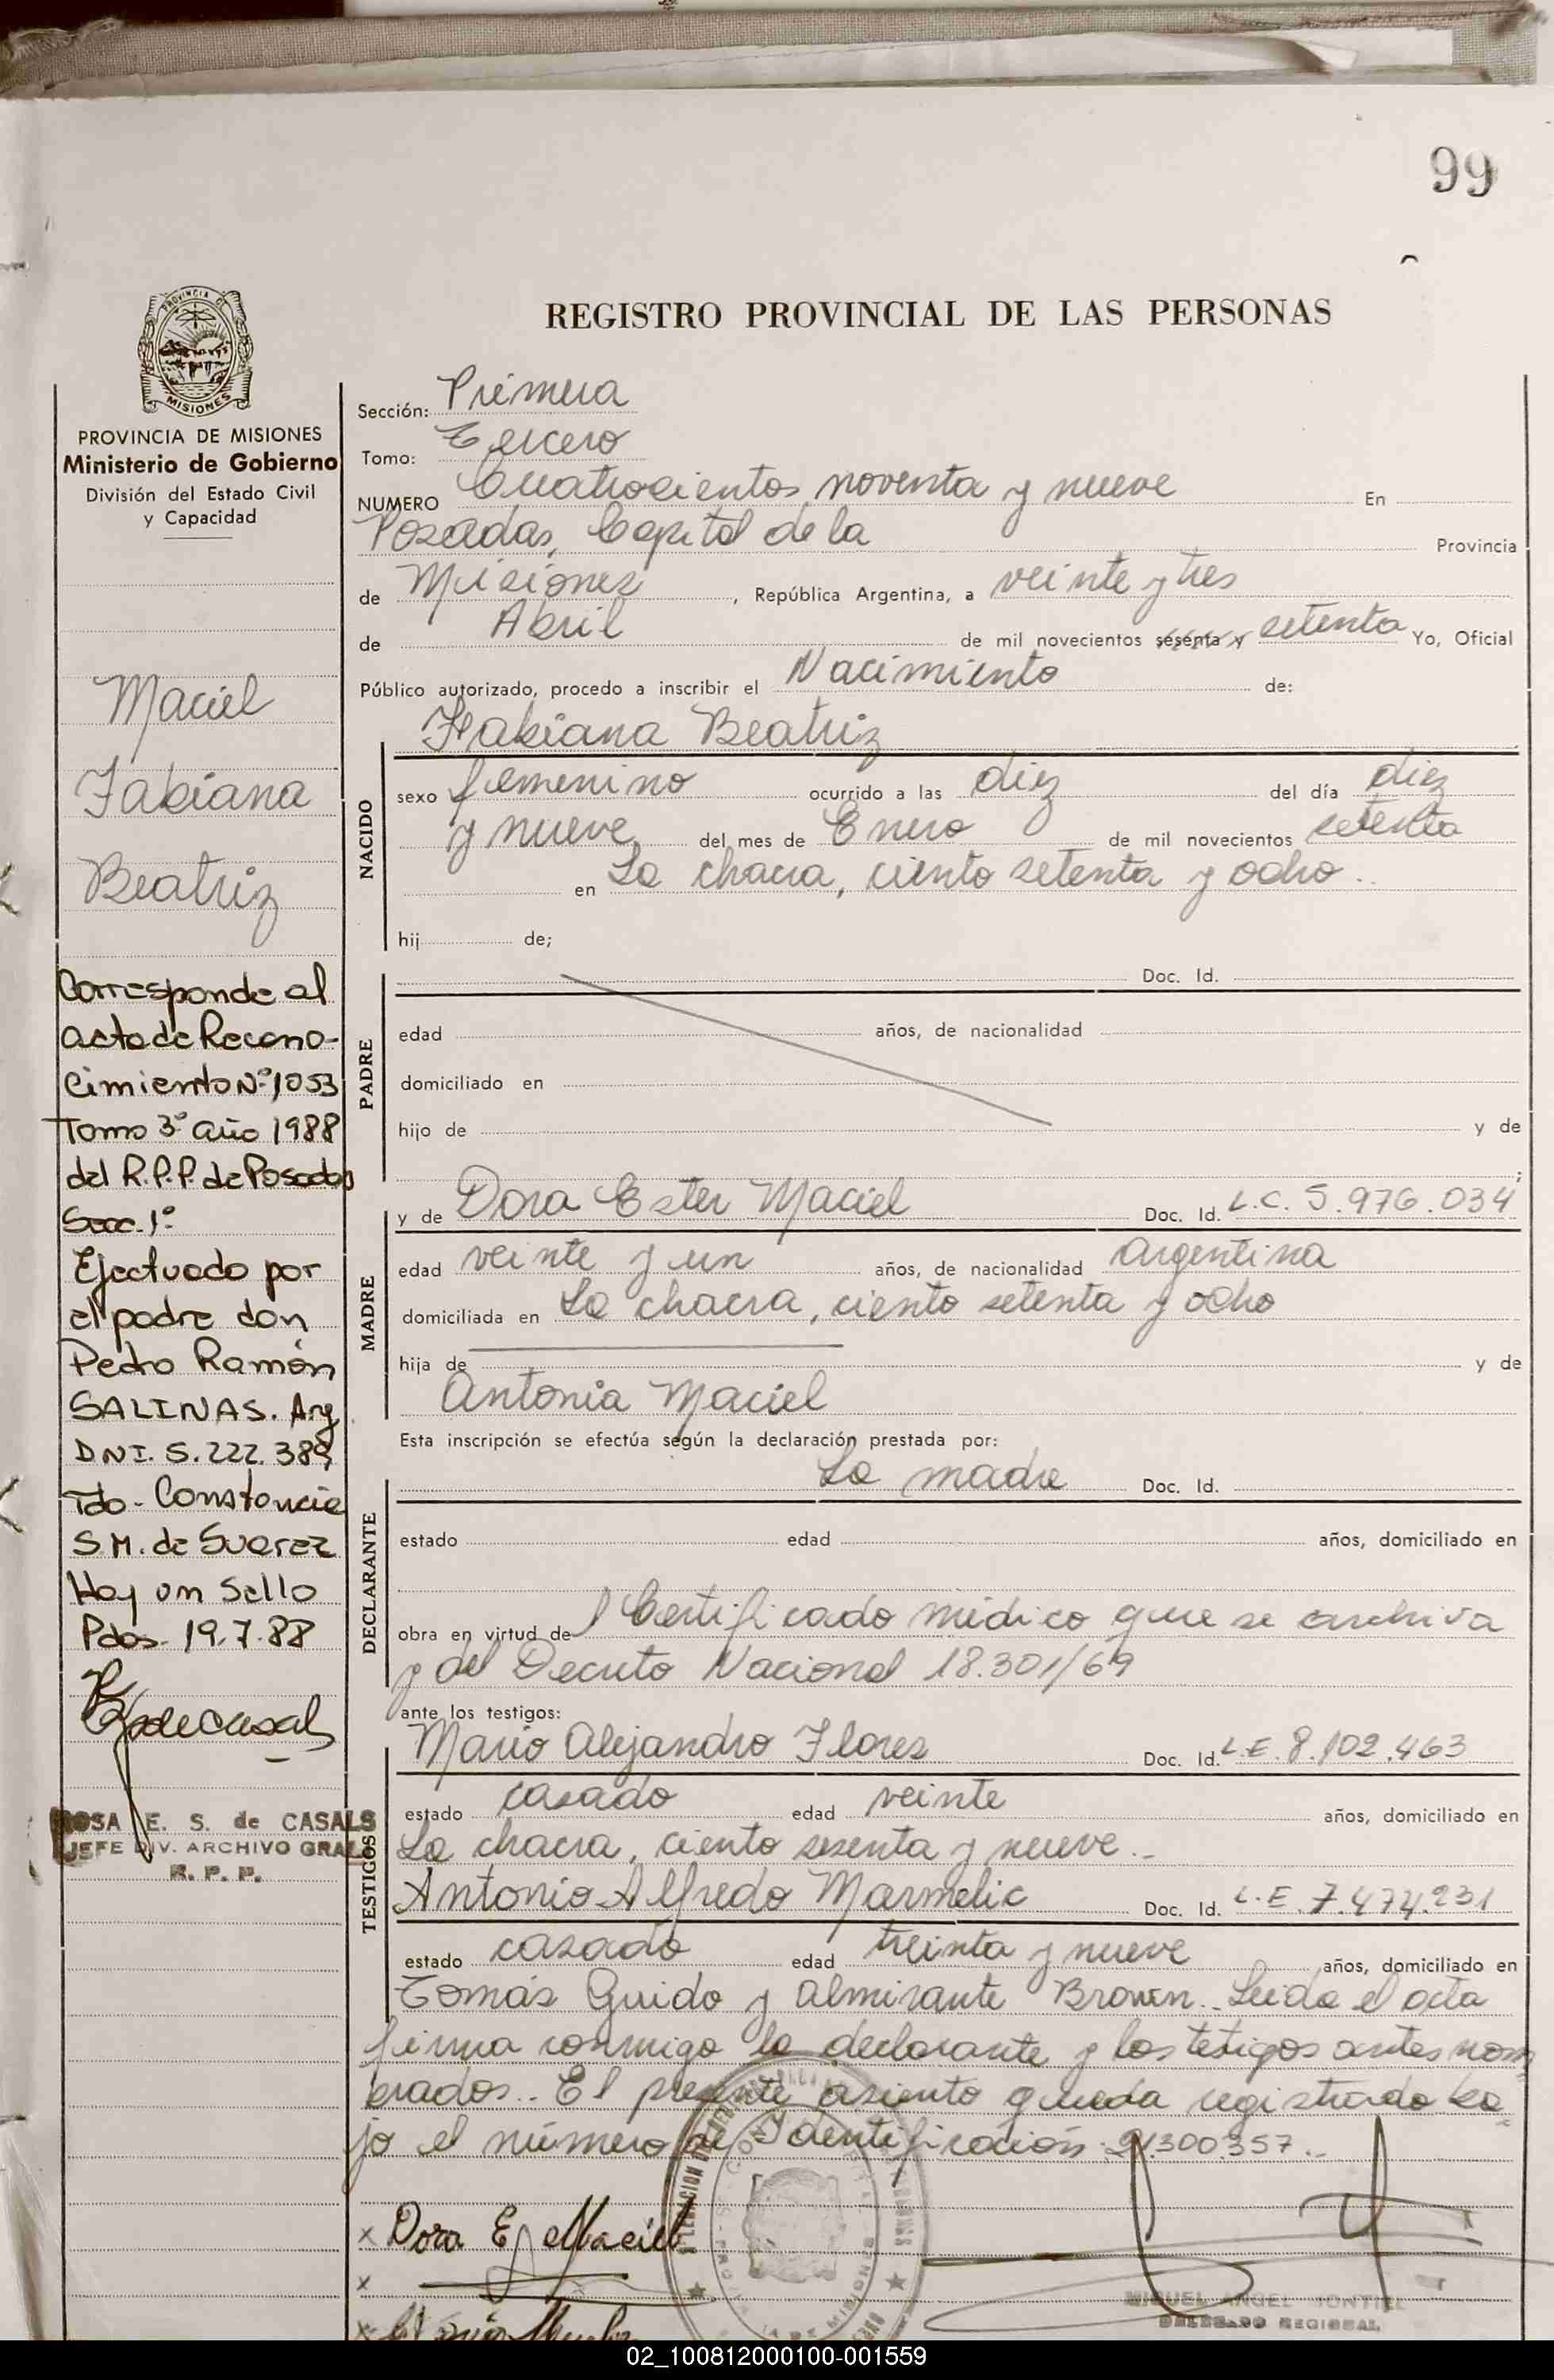 99
REGISTRO PROVINCIAL DE LAS PERSONAS
PROVINCIA DE MISIONES
Ministerio de Gobierno
División del Estado Civil
y Capacidad
Maciel
Fabiana
Beatriz
Corresponde al
acta de Recono-
cimiento Nº 1053
Tomo 3º año 1988
del R.P.P. de Posadas
Secc. 1º
Ejectuado por
el padre don
Pedro Ramón
SALINAS. Arg
DNI. 5.222.389
Fdo - Constancia
S.M. de Suarez
Hay un Sello
Pdas. 19.7.88
ROSA E. S. de CASALS
JEFE DIV. ARCHIVO GRAL
R. P. P.
Sección: Primera
Tomo: Tercero
NUMERO Cuatrocientos noventa y nueve En
Posadas, Capital de la Provincia
de Misiones, República Argentina, a veinte y tres
de Abril de mil novecientos sesenta y setenta Yo, Oficial
Público autorizado, procedo a inscribir el Nacimiento de:
Fabiana Beatriz
NACIDO
sexo femenino ocurrido a las diez del día diez
y nueve del mes de Enero de mil novecientos setenta
en La chacra, ciento setenta y ocho.
hij de;
PADRE
Doc. Id.
edad años, de nacionalidad
domiciliado en
hijo de y de
;
MADRE
y de Dora Ester Maciel Doc. Id. L.C. 5.976.034
edad veinte y un años, de nacionalidad argentina
domiciliada en La chacra, ciento setenta y ocho
hija de y de
Antonia Maciel
Esta inscripción se efectúa según la declaración prestada por:
DECLARANTE
La madre Doc. Id.
estado edad años, domiciliado en
obra en virtud de l Certificado médico que se archiva
y del Decreto Nacional 18.301/69
ante los testigos:
TESTIGOS
Mario Alejandro Flores Doc. Id. L.E. 8.102.463
estado casado edad veinte años, domiciliado en
La chacra, ciento sesenta y nueve.-
Antonio Alfredo Marmelic Doc. Id. L.E. 7.474.231
estado casado edad treinta y nueve años, domiciliado en
Tomás Guido y Almirante Brown.- Leida el acta
firma conmigo la declarante y los testigos antes nom
brados.. El presente asiento queda registrado ba
jo el número de Identificación 21.300.357.-
x Dora E. Maciel
x
x
MIGUEL ANGEL MONTIEL
DELEGADO REGIONAL
02_100812000100-001559